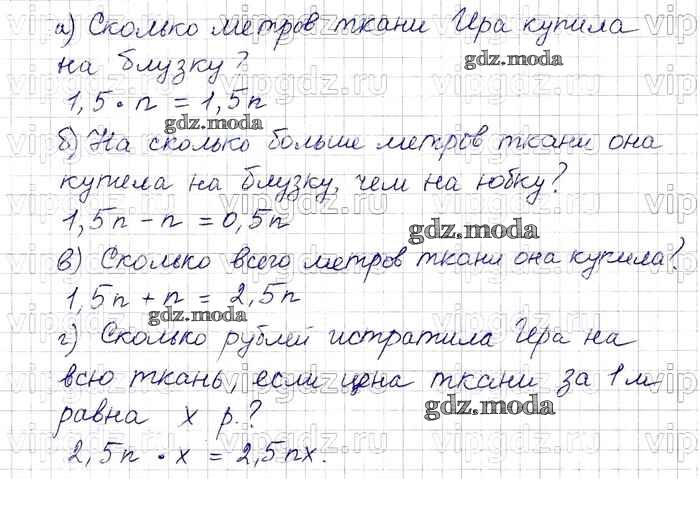 а) Сколько метров ткани Ира купила
на блузку?
1,5 · n = 1,5n
б) На сколько больше метров ткани она
купила на блузку, чем на юбку?
1,5n - n = 0,5n
в) Сколько всего метров ткани она купила?
1,5n + n = 2,5n
г) Сколько рублей истратила Ира на
всю ткань, если цена ткани за 1 м
равна x р.?
2,5n · x = 2,5nx.
gdz.moda
gdz.moda
gdz.moda
gdz.moda
gdz.moda
vipgdz.ru